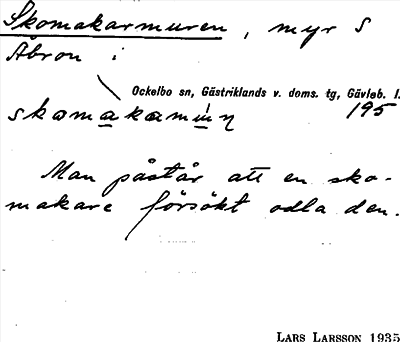 Skomakarmuren, myr S
Åbron :
Ockelbo sn, Gästriklands v. doms. tg, Gävleb. l.
195
Man påstår att en sko-
makare försökt odla den.
LARS LARSSON 1935